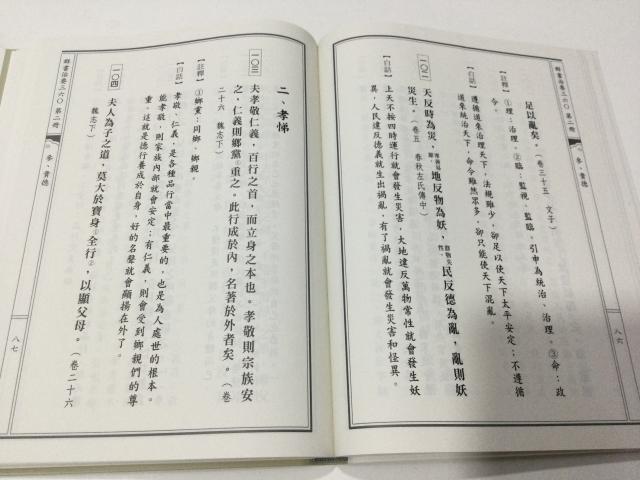 群書治要三六〇 第二冊
參、貴德
八六
足以亂矣。(卷三十五 文子)
【註釋】①理:治理。②臨:監視、監臨。引申為統治、治理。③命:政
令。
【白話】遵循道來治理天下,法規雖少,卻足以使天下太平安定;不遵循
道來統治天下,命令雖然眾多,卻只能使天下混亂。
一〇二 天反時為災,地反物為妖,民反德為亂,亂則妖
災生。(卷五 春秋左氏傳中)
【白話】上天不按四時運行就會發生災害,大地違反萬物常性就會發生妖
異,人民違反德義就生出禍亂,有了禍亂就會發生災害和怪異。
二、孝悌
一〇三 夫孝敬仁義,百行之首,而立身之本也。孝敬則宗族安
之,仁義則鄉黨①重之。此行成於內,名著於外者矣。(卷
二十六 魏志下)
【註釋】①鄉黨:同鄉、鄉親。
【白話】孝敬、仁義,是各種品行當中最重要的,也是為人處世的根本。
能孝敬,則家族內部就會安定;有仁義,則會受到鄉親們的尊
重。這就是德行養成於自身,好的名聲就會顯揚在外了。
一〇四 夫人為子之道,莫大於寶身①全行②,以顯父母。(卷二十六
魏志下)
群書治要三六〇 第二冊
參、貴德
八七